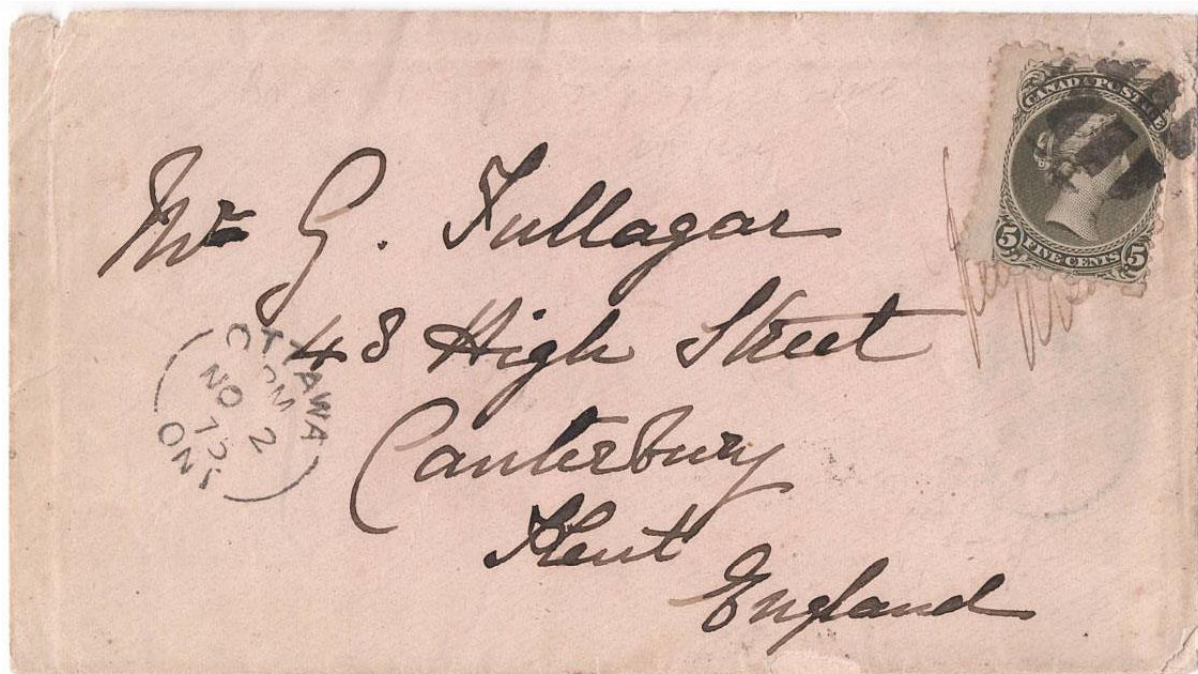 CANADA POSTAGE
5 FIVE CENTS 5
Mr G. Fullagar
48 High Street
Canterbury
Kent
England
OTTAWA
PM
NO 2
75
ONT